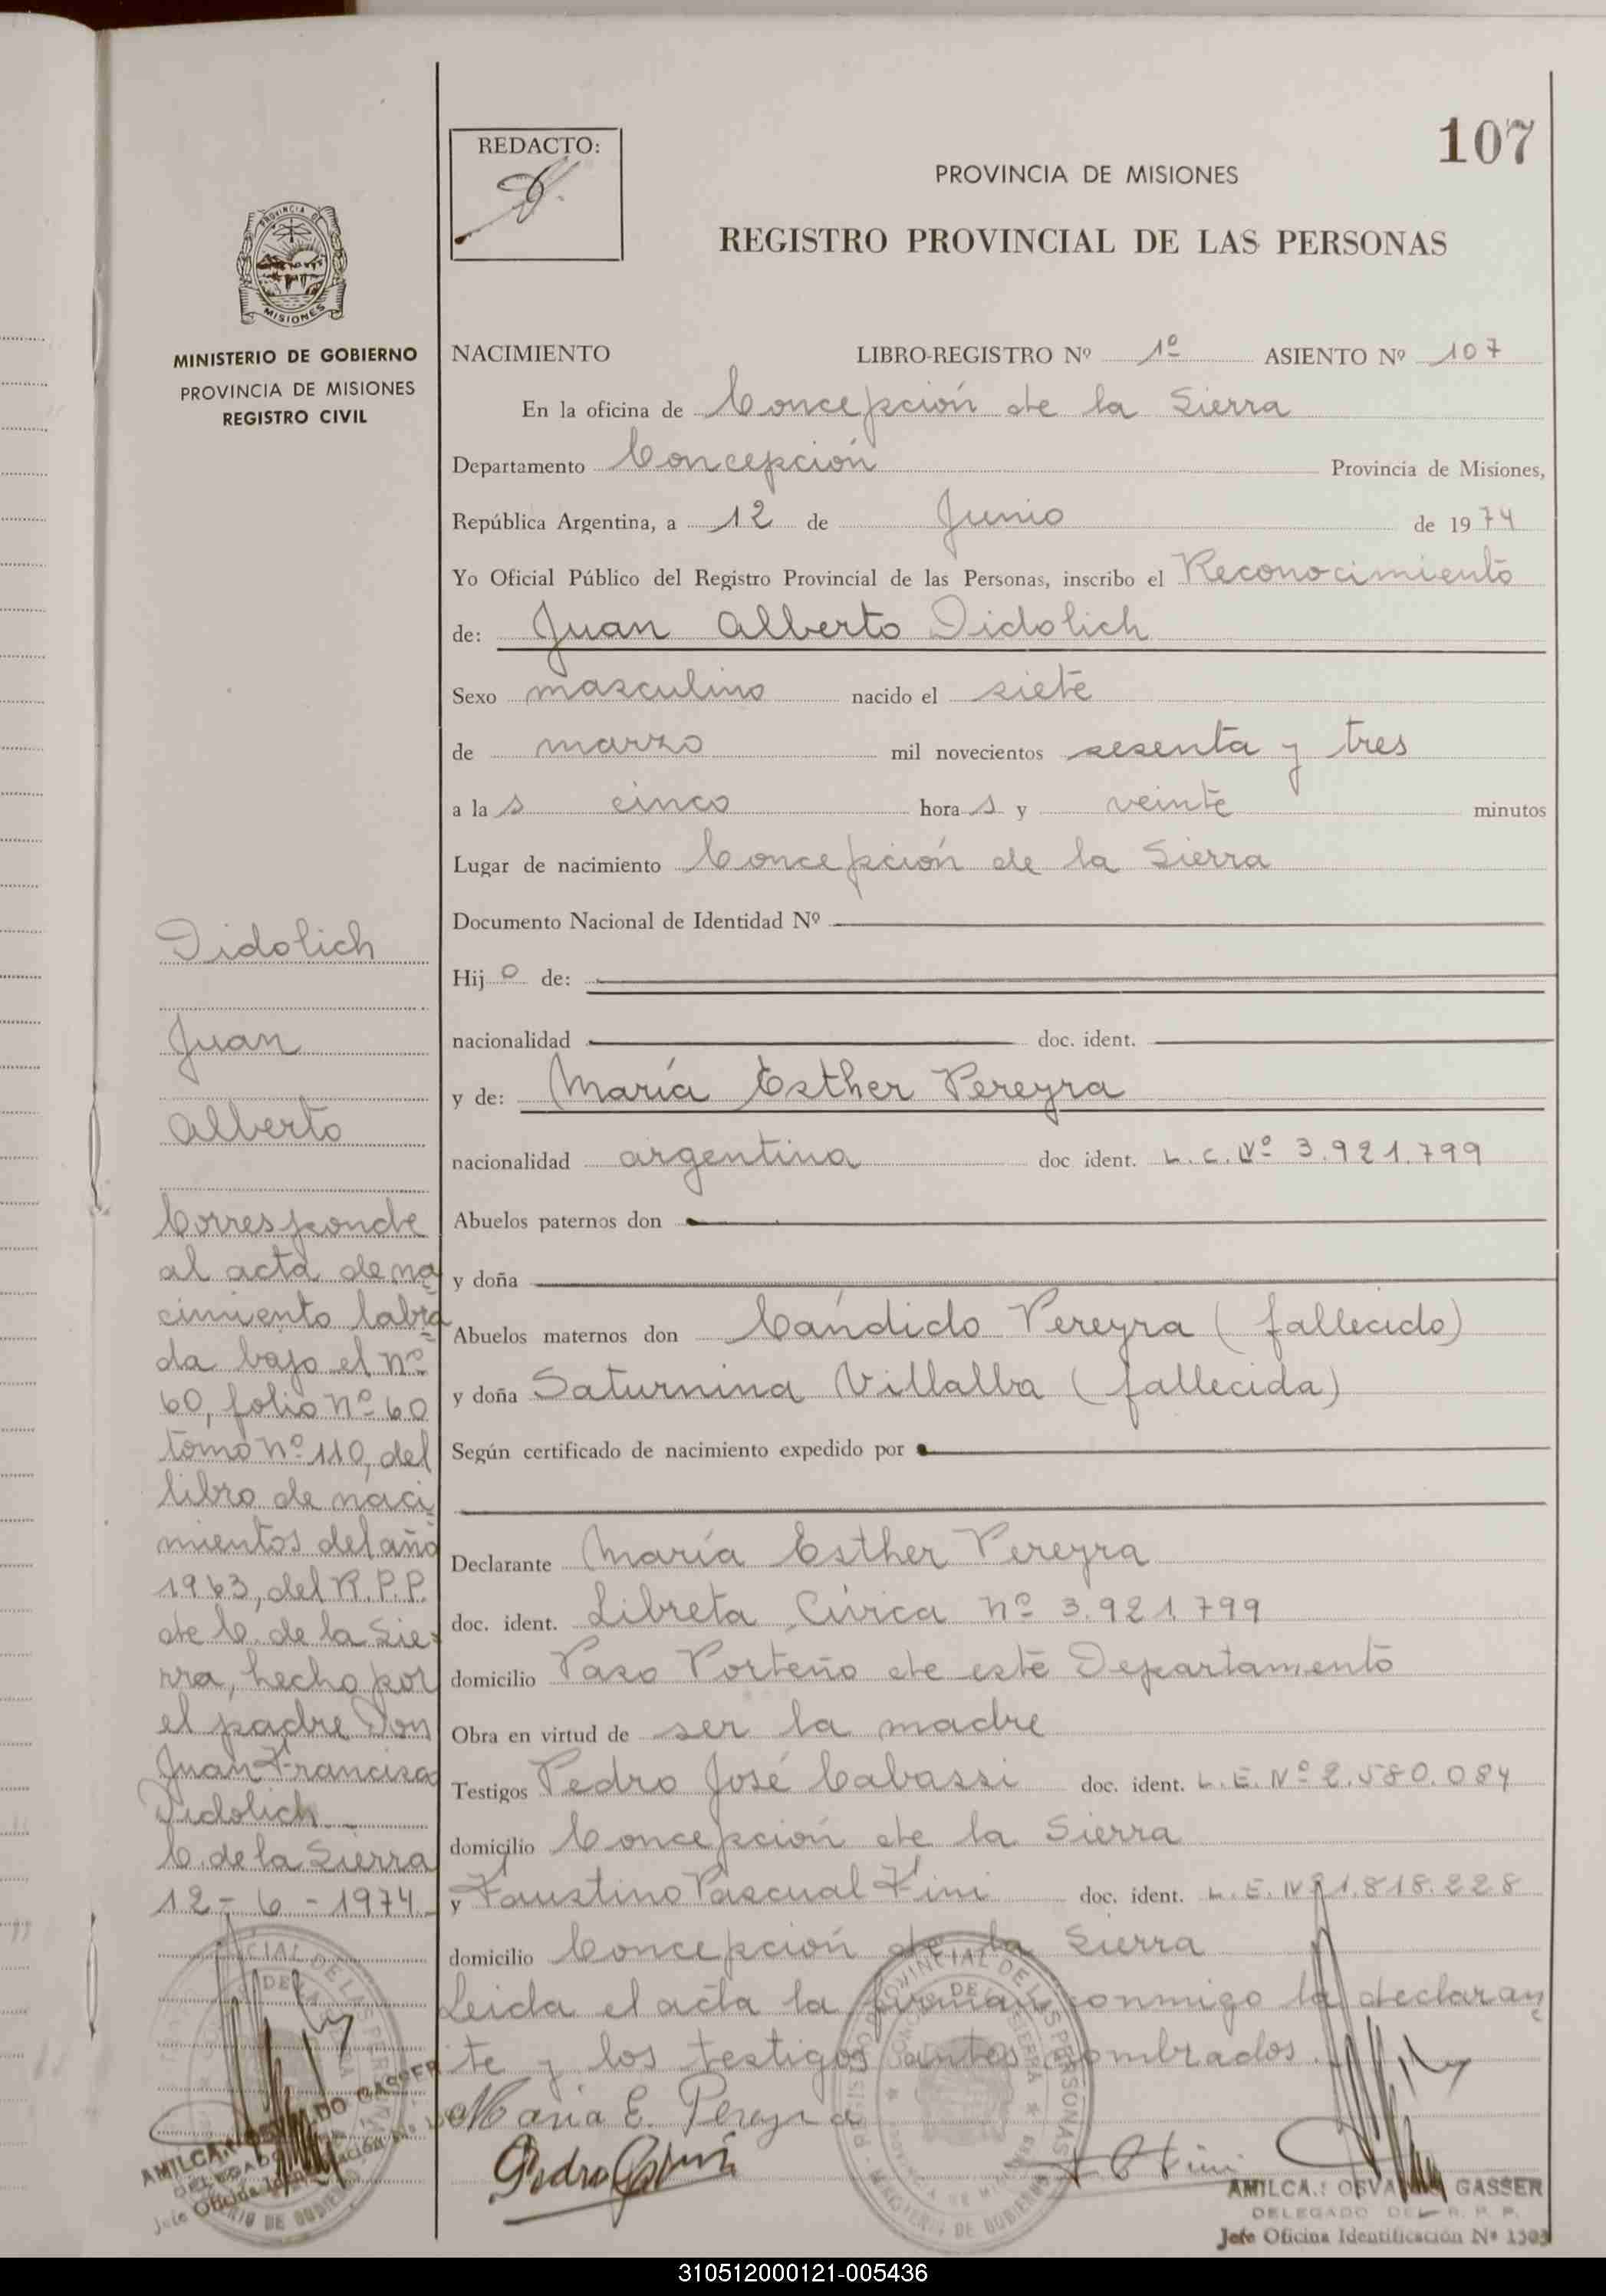 107
REDACTO:
PROVINCIA DE MISIONES
REGISTRO PROVINCIAL DE LAS PERSONAS
PROVINCIA DE
MISIONES
MINISTERIO DE GOBIERNO
PROVINCIA DE MISIONES
REGISTRO CIVIL
NACIMIENTO LIBRO-REGISTRO Nº 1º ASIENTO Nº 107
En la oficina de Concepción de la Sierra
Departamento Concepción Provincia de Misiones,
República Argentina, a 12 de Junio de 1974
Yo Oficial Público del Registro Provincial de las Personas, inscribo el Reconocimiento
de: Juan Alberto Didolich
Sexo masculino nacido el siete
de marzo mil novecientos sesenta y tres
a las cinco horas y veinte minutos
Lugar de nacimiento Concepción de la Sierra
Documento Nacional de Identidad Nº
Hijo de:
nacionalidad doc. ident.
y de: María Esther Pereyra
nacionalidad argentina doc ident. L.C. Nº 3.921.799
Abuelos paternos don
y doña
Abuelos maternos don Cándido Pereyra (fallecido)
y doña Saturnina Villalba (fallecida)
Según certificado de nacimiento expedido por
Declarante María Esther Pereyra
doc. ident. Libreta Cívica nº 3.921.799
domicilio Paso Porteño de este Departamento
Obra en virtud de ser la madre
Testigos Pedro José Cabassi doc. ident. L.E. Nº 2.580.084
domicilio Concepción de la Sierra
y Faustino Pascual Fini doc. ident. L.E. Nº 1.818.228
domicilio Concepción de la Sierra
Leida el acta la firman conmigo la declaran
te y los testigos antes nombrados.
Maria E. Pereyra
Didolich
Juan
Alberto
Corresponde
al acta de na
cimiento labra
da bajo el nº
60, folio nº 60
tomo nº 110, del
libro de naci
mientos del año
1963, del R.P.P.
de C. de la Sie-
rra, hecho por
el padre Don
Juan Francisco
Didolich
C. de la Sierra
12-6-1974
GASSER
DELEGADO DEL R. P. P.
Jefe Oficina Identificación Nº
310512000121-005436